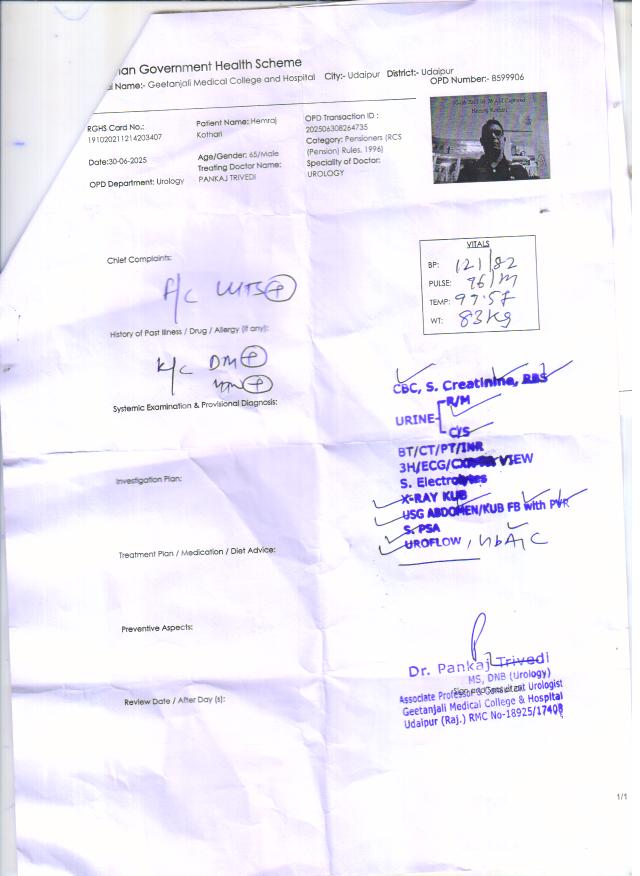 an Government Health Scheme
Name:- Geetanjali Medical College and Hospital City:- Udaipur District:- Udaipur
OPD Number:- 8599906
RGHS Card No.:
191020211214203407
Date:30-06-2025
OPD Department: Urology
Patient Name: Hemraj
Kothari
Age/Gender: 65/Male
Treating Doctor Name:
PANKAJ TRIVEDI
OPD Transaction ID :
202506308264735
Category: Pensioners (RCS
(Pension) Rules, 1996)
Speciality of Doctor:
UROLOGY
Hemraj Kothari
VITALS
BP: 121/82
PULSE: 96/m
TEMP: 97.5F
WT: 83Kg
Chief Complaints:
A/C LUTS +
History of Past Illness / Drug / Allergy (if any):
K/C DM +
HTN +
Systemic Examination & Provisional Diagnosis:
CBC, S. Creatinine, RBS
URINE
R/M
C/S
BT/CT/PT/INR
3H/ECG/ VIEW
S. Electrolytes
X-RAY KUB
USG ABDOMEN/KUB FB with PVR
S. PSA
UROFLOW , HbA1C
Investigation Plan:
Treatment Plan / Medication / Diet Advice:
Preventive Aspects:
Review Date / After Day (s):
Dr. Pankaj Trivedi
MS, DNB (Urology)
Associate Professor & Consultant Urologist
Geetanjali Medical College & Hospital
Udaipur (Raj.) RMC No-18925/17408
1/1